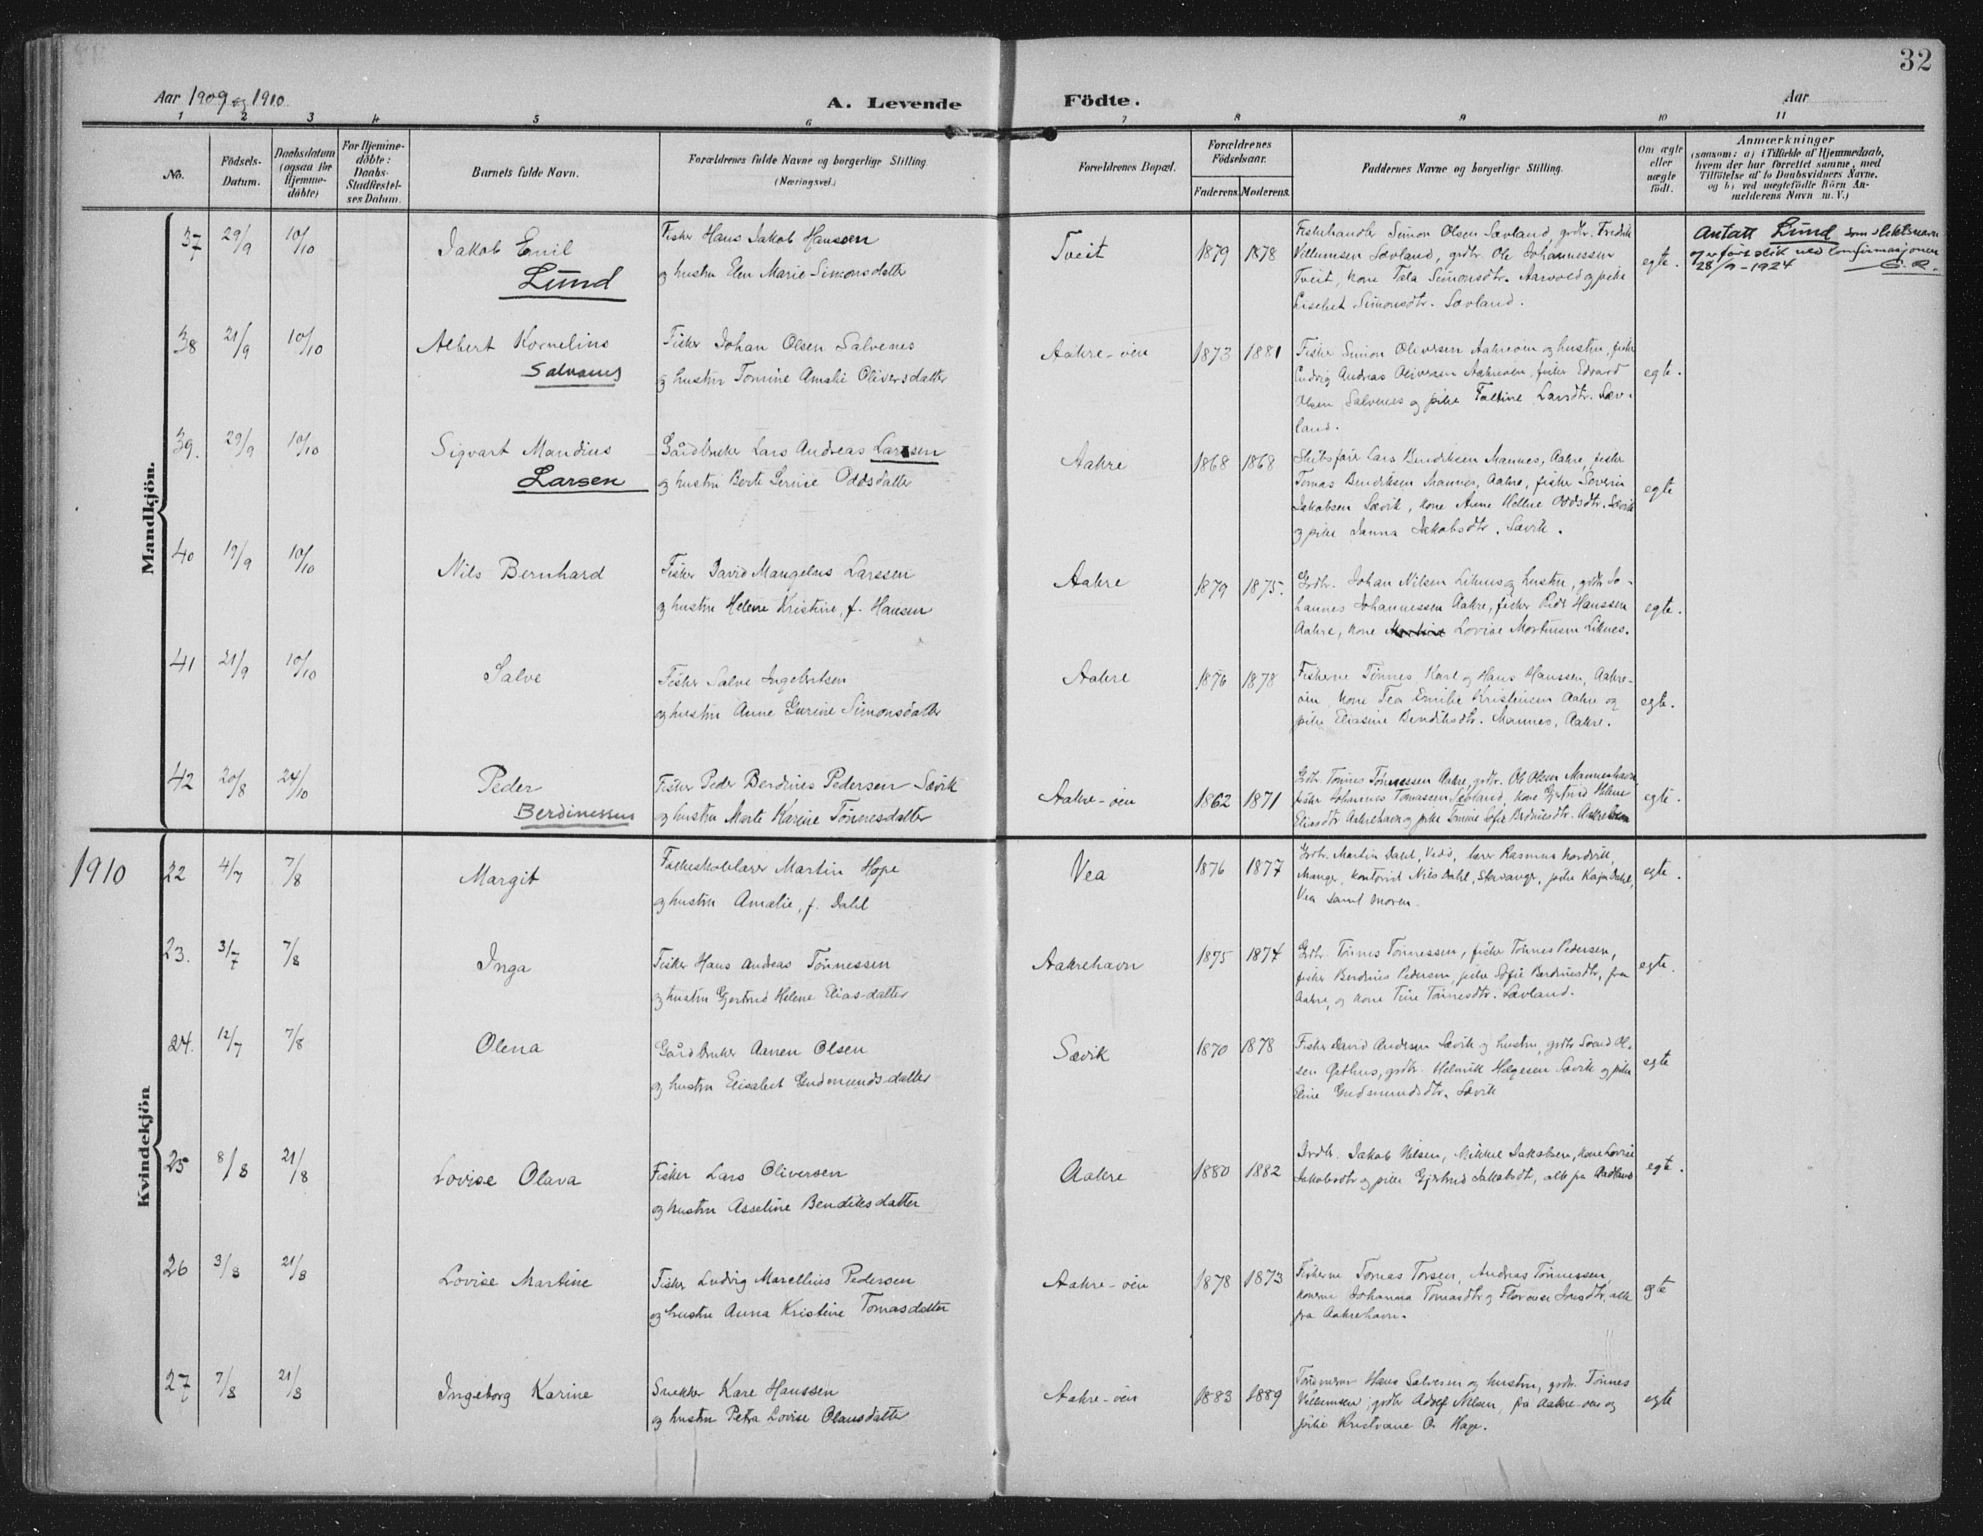 32
Aar 1909 og 1910.
A. Levende Födte.
Aar
1 2 3 4 5 6 7 8 9 10 11
No.
Födsels-Datum.
Daabsdatum (ogsaa for Hjemme-döbte)
For Hjemme-döbte: Daabs-Stadfæstel-ses Datum.
Barnets fulde Navn.
Forældrenes fulde Navne og borgerlige Stilling. (Næringsvei.)
Forældrenes Bopæl.
Forældrenes Födselsaar.
Faderens. Moderens.
Faddernes Navne og borgerlige Stilling.
Om ægte eller uægte födt.
Anmærkninger
(saasom: a) i Tilfælde af Hjemmedaab, hvem der har forrettet samme, med Tilföielse af to Daabsvidners Navne. og b) ved uægtefödte Börn An-melderens Navn m. V.)
Mandkjön.
37 29/9 10/10 Jakob Emil Lund
Fisker Hans Jakob Hanssen
og hustru Elen Marie Simonsdatter
Tveit 1879 1878
Fiskehandler Simon Olsen Sævland, grdbr. Fredrik
Villumsen Sævland, grdbr. Ole Johannessen
Tveit, kone Tala Simonsdtr. Aarvold og pike
Simonsdtr. Sævland.
egte.
Antatt Lund som slektsnavn
og erført slik ved konfirmasjonen
28/9-1924
38 21/9 10/10 Albert Kornelius Salvenes
Fisker Johan Olsen Salvenes
og hustru Tomine Amalie Oliversdatter
Aakre-øen 1873 1881
Fisker Simon Oliversen Aakreøen og hustru, fisker
Ludvig Andreas Oliversen Aakreøen, fisker Edvard
Olsen Salvenes og pike Taltine Larsdtr. Sæv-
land.
egte.
39. 29/9 10/10 Sigvart Mandius Larsen
Gårdbruker Lars Andreas Larsen
og hustru Berte Serine Oddsdatter
Aakre 1868 1868
Skibsfører Lars Bendiksen Mannes, Aakre, fisker
Tomas Bendiksen Mannes, Aakre, fisker Severin
Jakobsen Sævik, kone Anne Helene Oddsdtr. Sævik
og pike Janna Jakobsdtr. Sævik.
egte
40 19/9 10/10 Nils Bernhard
Fisker David Mangelus Larssen
og hustru Helene Kristine, f. Hansen
Aakre 1879 1875.
Grdbr. Johan Nilsen Liknes og hustru, grdbr Jo-
hannes Johannessen Aakre, fisker Peder Hanssen
Aakre, kone Lovise Mortensen Liknes.
egte.
41 21/9 10/10 Salve
Fisker Salve Ingebretsen
og hustru Anne Gurine Simonsdatter
Aakre 1876 1878
Fiskerne Tønnes, Karl og Hans Hanssen, Aakre-
øen, kone Tea Emilie Kristensen Aakre og
pike Eliasine Bendiksdtr. Mannes, Aakre.
egte.
42 20/8 24/10 Peder Berdinessen
Fisker Peder Berdines Pedersen Sævik
og hustru Marte Karine Tønnesdatter
Aakre-øen 1862 1871
Grdbr. Tønnes Tønnessen Aakre, grdbr. Ole Olsen Manneshavn
fisker Johannes Tomassen Sævland, kone Gjertrud Helene
Eliasdtr Aakrehavn og pike Tomine Sofie Berdinesdtr.
egte.
1910
Kvindekjön
22 4/7 7/8 Margit
Folkeskolelærer Martin Hope
og hustru Amalie, f. Dahl
Vea 1876 1877
Grdbr. Martin Dahl, lærer Rasmus Nordvik,
Manger, kontorist Nils Dahl, Stavanger, pike Kaja Dahl,
Vea samt moren.
egte.
23. 3/7 7/8 Inga
Fisker Hans Andreas Tønnessen
og hustru Gjertrud Helene Elias-datter
Aakrehavn 1875 1874
Grdbr. Tønnes Tønnessen, fisker Tønnes Pedersen,
fisker Berdines Pedersen, pike Sofie Berdinesdtr, fra
Aakre, og kone Tine Tønnesdtr. Sævland.
egte.
24. 12/7 7/8 Olena
Gårdbruker Aanen Olsen
og hustru Elisabet Gudmunds-datter
Sævik 1870 1878
Fisker David Andersen Sævik og hustru, grdbr Svend Ol-
sen Østhus, grdbr. Helmik Helgesen Sævik og pike
Eline Gudmundsdtr. Sævik
egte
25 8/8 21/8 Lovise Olava
Fisker Lars Oliversen
og hustru Asseline Bendiksdatter
Aakre 1880 1882
Grdbr. Jakob Nilsen, Mikkel Jakobsen, kone Lovise
Jakobsdtr og pike Gjertrud Jakobsdtr, alle fra
egte.
26 3/8 21/8 Lovise Martine
Fisker Ludvig Marellius Pedersen
og hustru Anna Kristine Tomasdatter
Aakre-øen 1878 1873
Fiskerne Tomas Torsen, Andreas Tønnessen,
konerne Johanna Tomasdtr og alle
fra Aakrehavn.
egte
27 7/8 21/8 Ingeborg Karine
Snekker Kare Hanssen
og hustru Petra Lovise Olausdatter
Aakre-øen 1883 1889
Tømmerm Hans Salvesen og hustru, grdbr. Tønnes
Villumsen, grdbr Adolf Nilsen, fra Aakre-øen og
pike Kristiane O. Hage.
egte